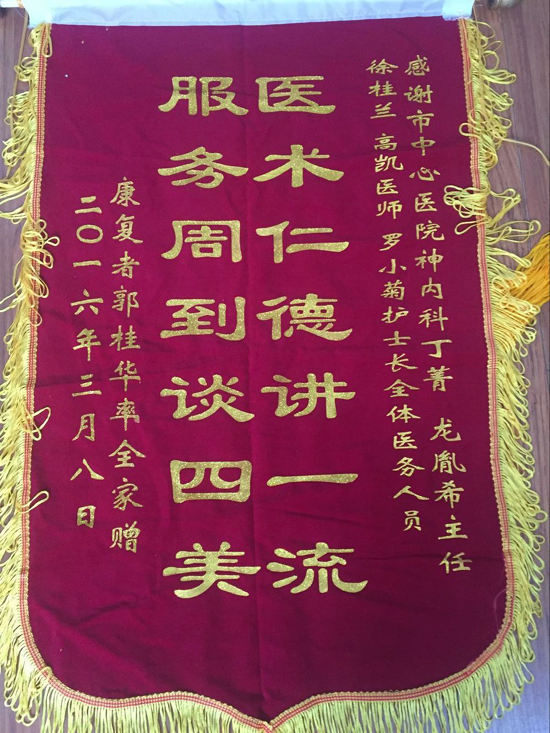 感谢市中心医院神内科丁菁 龙胤希主任
徐桂兰 高凯医师 罗小菊护士长全体医务人员
医术仁德讲一流
服务周到谈四美
康复者郭桂华率全家赠
二〇一六年三月八日